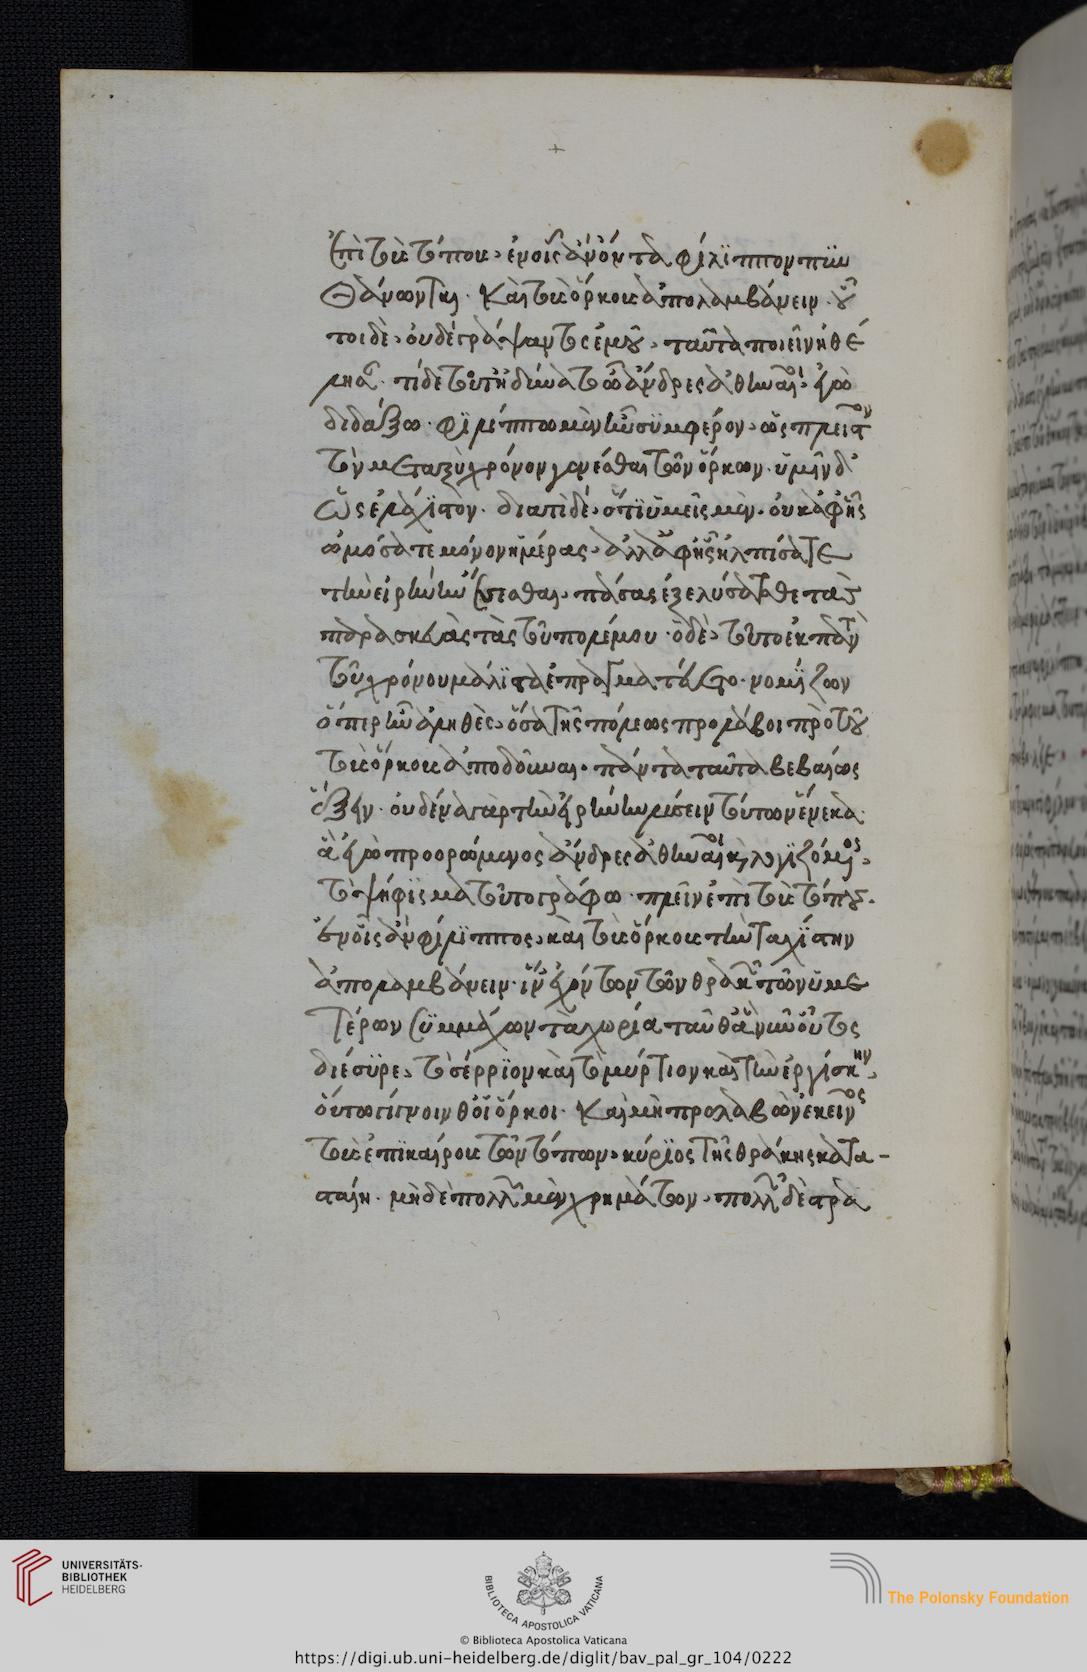 ἐπὶ τοὺς τόπους, ἐν οἷς ἂν ὄντα φίλιππον πυν
θάνωνται. καὶ τοὺς ὅρκους ἀπολαμβάνειν. οὗ
τοι δὲ, οὐδὲ γράψαντος ἐμοῦ, ταῦτα ποιεῖν ἠθέ
λησαν. τί δὲ τοῦτ' ἠδύνατο ὦ ἄνδρες ἀθηναῖοι. ἐγὼ
διδάξω. φιλίππω μὲν ἦν συμφέρον, ὡς πλεῖστον
τὸν μεταξὺ χρόνον γενέσθαι τῶν ὅρκων. ὑμῖν δ'
ὡς ἐλάχιστον. διατί δέ, ὅτι ὑμεῖς μὲν, οὐκ ἀφ' ἧς
ὠμόσατε μόνον ἡμέρας, ἀλλ' ἀφ' ἧς ἠλπίσατε
τὴν εἰρήνην ἔσεσθαι, πάσας ἐξελύσασθε τὰς
παρασκευὰς τὰς τοῦ πολέμου. ὁ δὲ, τοῦτο ἐκ παντὸς
τοῦ χρόνου μάλιστα ἐπραγματεύετο. νομίζων
ὅπερ ἦν ἀληθὲς, ὅσα τῆς πόλεως προλάβοι πρὸ τοῦ
τοὺς ὅρκους ἀποδοῦναι, πάντα ταῦτα βεβαίως
ἕξειν. οὐδένα γὰρ τὴν εἰρήνην λύσειν τούτων ἕνεκα.
ἃ ἐγὼ προορώμενος ἄνδρες ἀθηναῖοι καὶ λογιζόμενος,
τὸ ψήφισμα τοῦτο γράφω. πλεῖν ἐπὶ τοὺς τόπους.
ἐν οἷς ἂν φίλιππος, καὶ τοὺς ὅρκους τὴν ταχίστην
ἀπολαμβάνειν. ἵν' ἐχόντων τῶν θρακῶν τῶν ὑμε
τέρων συμμάχων τὰ χωρία ταῦθ' ἃ νῦν οὗτος
διέσυρε, τὸ σέρριον καὶ τὸ μύρτιον καὶ τὴν ἐργίσκην,
οὕτω γίγνοινθ' οἱ ὅρκοι. καὶ μὴ προλαβὼν ἐκεῖνος
τοὺς ἐπικαίρους τῶν τόπων, κύριος τῆς θράκης κατα-
σταίη. μηδὲ πολλῶν μὲν χρημάτων, πολλῶν δὲ στρα
UNIVERSITÄTS-
BIBLIOTHEK
HEIDELBERG
BIBLIOTECA APOSTOLICA VATICANA
The Polonsky Foundation
© Biblioteca Apostolica Vaticana
https://digi.ub.uni-heidelberg.de/diglit/bav_pal_gr_104/0222